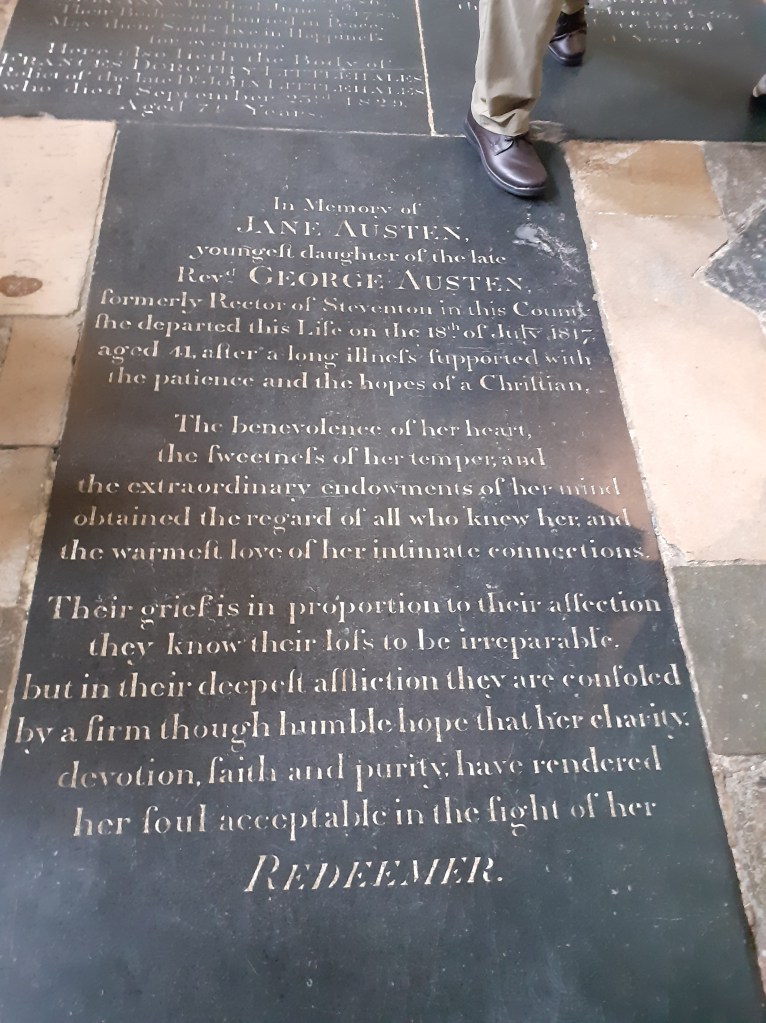 who were buried in Bath
May their Souls live in Happiness
for evermore
Here also lieth the Body of
FRANCES DOROTHY LITTLEHALES
Relict of the late Dr. JOHN LITTLEHALES
who died September 1829.
Aged 71 Years.
In Memory of
JANE AUSTEN,
youngeſt daughter of the late
Revd. GEORGE AUSTEN,
formerly Rector of Steventon in this County
ſhe departed this Life on the 18th of July 1817,
aged 41, after a long illneſs ſupported with
the patience and the hopes of a Chriſtian.
The benevolence of her heart,
the ſweetneſs of her temper, and
the extraordinary endowments of her mind
obtained the regard of all who knew her, and
the warmeſt love of her intimate connections.
Their grief is in proportion to their affection
they know their loſs to be irreparable,
but in their deepeſt affliction they are conſoled
by a firm though humble hope that her charity,
devotion, faith and purity, have rendered
her ſoul acceptable in the ſight of her
REDEEMER.